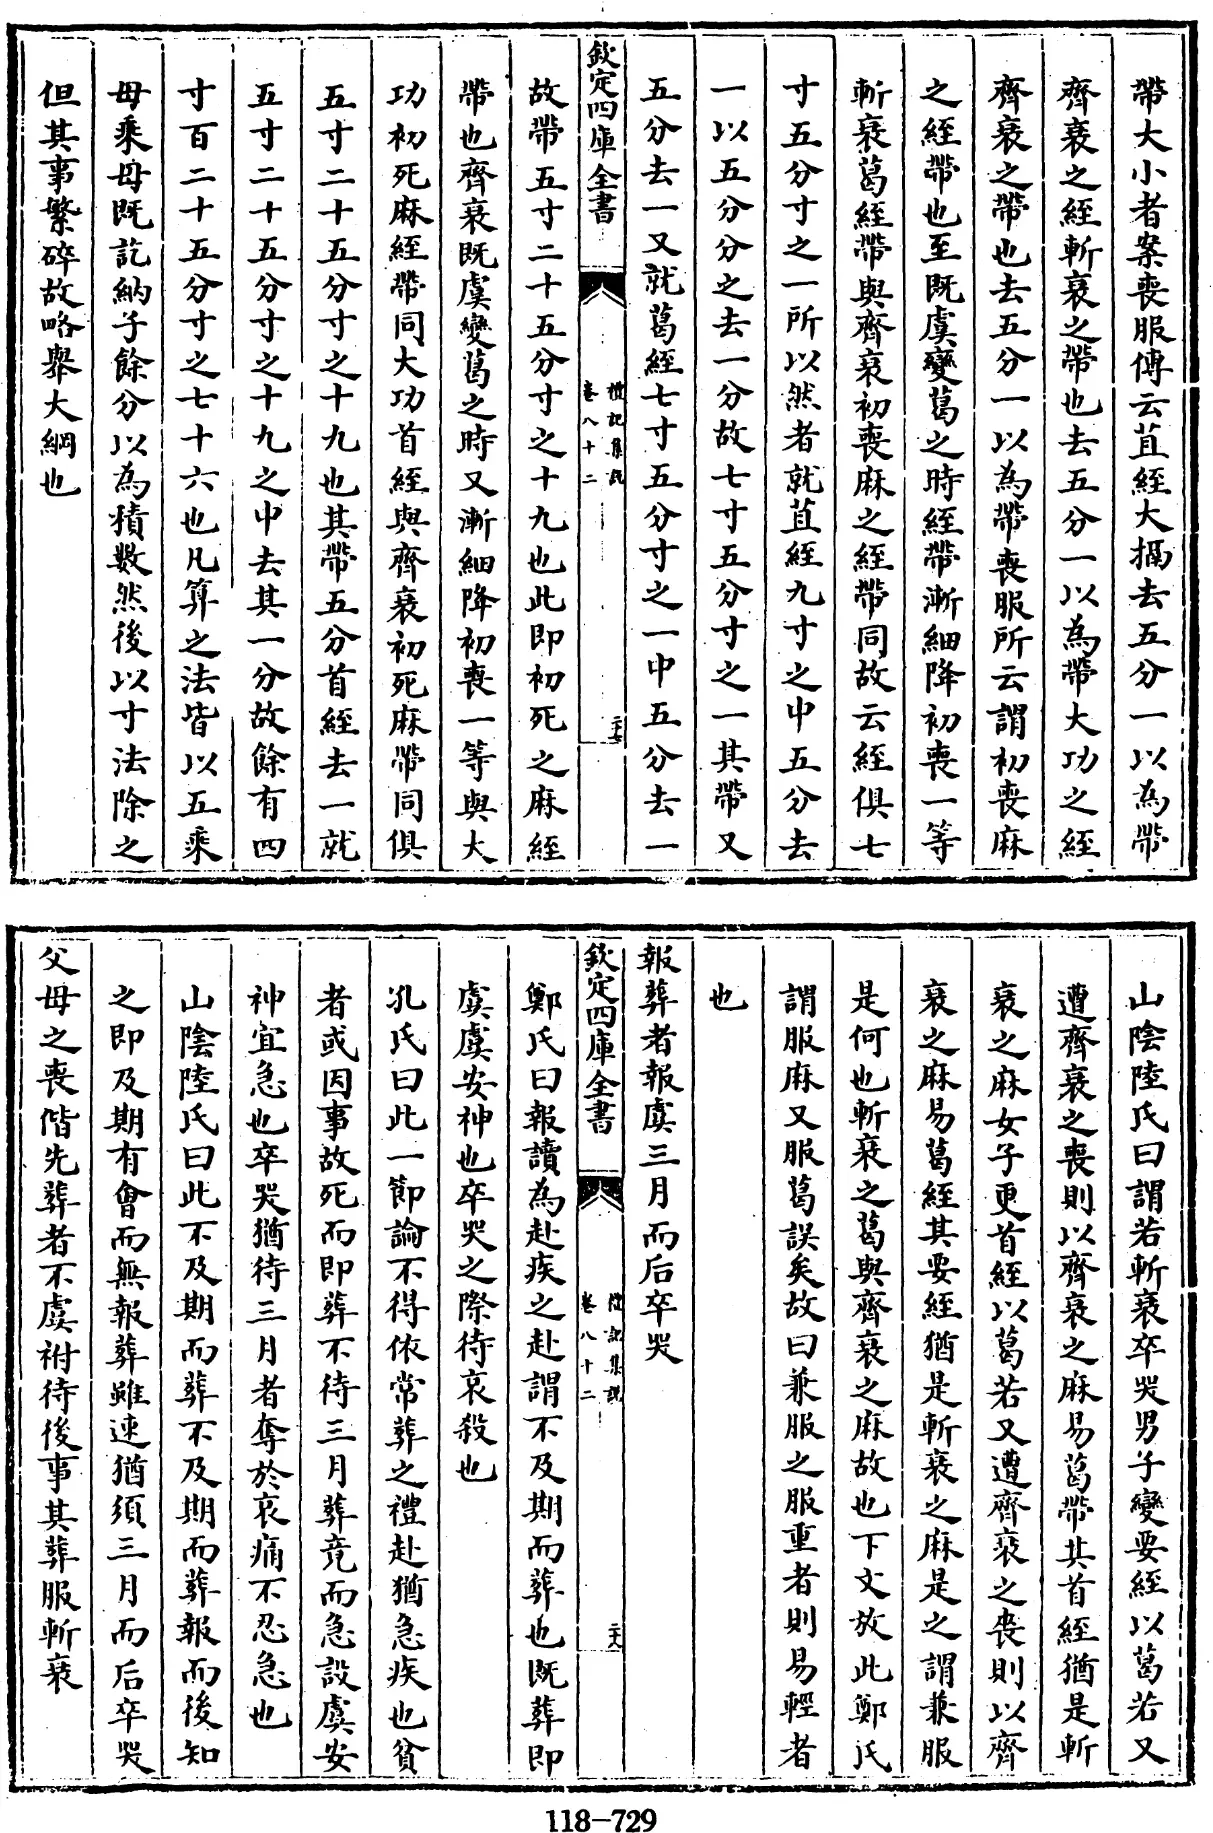 帶大小者案喪服傳云苴絰大搹去五分一以為帶
齊衰之絰斬衰之帶也去五分一以為帶大功之絰
齊衰之帶也去五分一以為帶喪服所云謂初喪麻
之絰帶也至既虞變葛之時絰帶漸細降初喪一等
斬衰葛絰帶與齊衰初喪麻之絰帶同故云絰俱七
寸五分寸之一所以然者就苴絰九寸之中五分去
一以五分分之去一分故七寸五分寸之一其帶又
五分去一又就葛絰七寸五分寸之一中五分去一
欽定四庫全書
禮記集說
卷八十二
二十七
故帶五寸二十五分寸之十九也此即初死之麻絰
帶也齊衰既虞變葛之時又漸細降初喪一等與大
功初死麻絰帶同大功首絰與齊衰初死麻帶同俱
五寸二十五分寸之十九也其帶五分首絰去一就
五寸二十五分寸之十九之中去其一分故餘有四
寸百二十五分寸之七十六也凡算之法皆以五乘
母乘母既訖納子餘分以為積數然後以寸法除之
但其事繁碎故略舉大綱也
山陰陸氏曰謂若斬衰卒哭男子變要絰以葛若又
遭齊衰之喪則以齊衰之麻易葛帶其首絰猶是斬
衰之麻女子更首絰以葛若又遭齊衰之喪則以齊
衰之麻易葛絰其要絰猶是斬衰之麻是之謂兼服
是何也斬衰之葛與齊衰之麻故也下文放此鄭氏
謂服麻又服葛誤矣故曰兼服之服重者則易輕者
也
報葬者報虞三月而后卒哭
欽定四庫全書
禮記集說
卷八十二
二十八
鄭氏曰報讀為赴疾之赴謂不及期而葬也既葬即
虞虞安神也卒哭之際待哀殺也
孔氏曰此一節論不得依常葬之禮赴猶急疾也貧
者或因事故死而即葬不待三月葬竟而急設虞安
神宜急也卒哭猶待三月者奪於哀痛不忍急也
山陰陸氏曰此不及期而葬不及期而葬報而後知
之即及期有會而無報葬雖速猶須三月而后卒哭
父母之喪偕先葬者不虞祔待後事其葬服斬衰
118-729